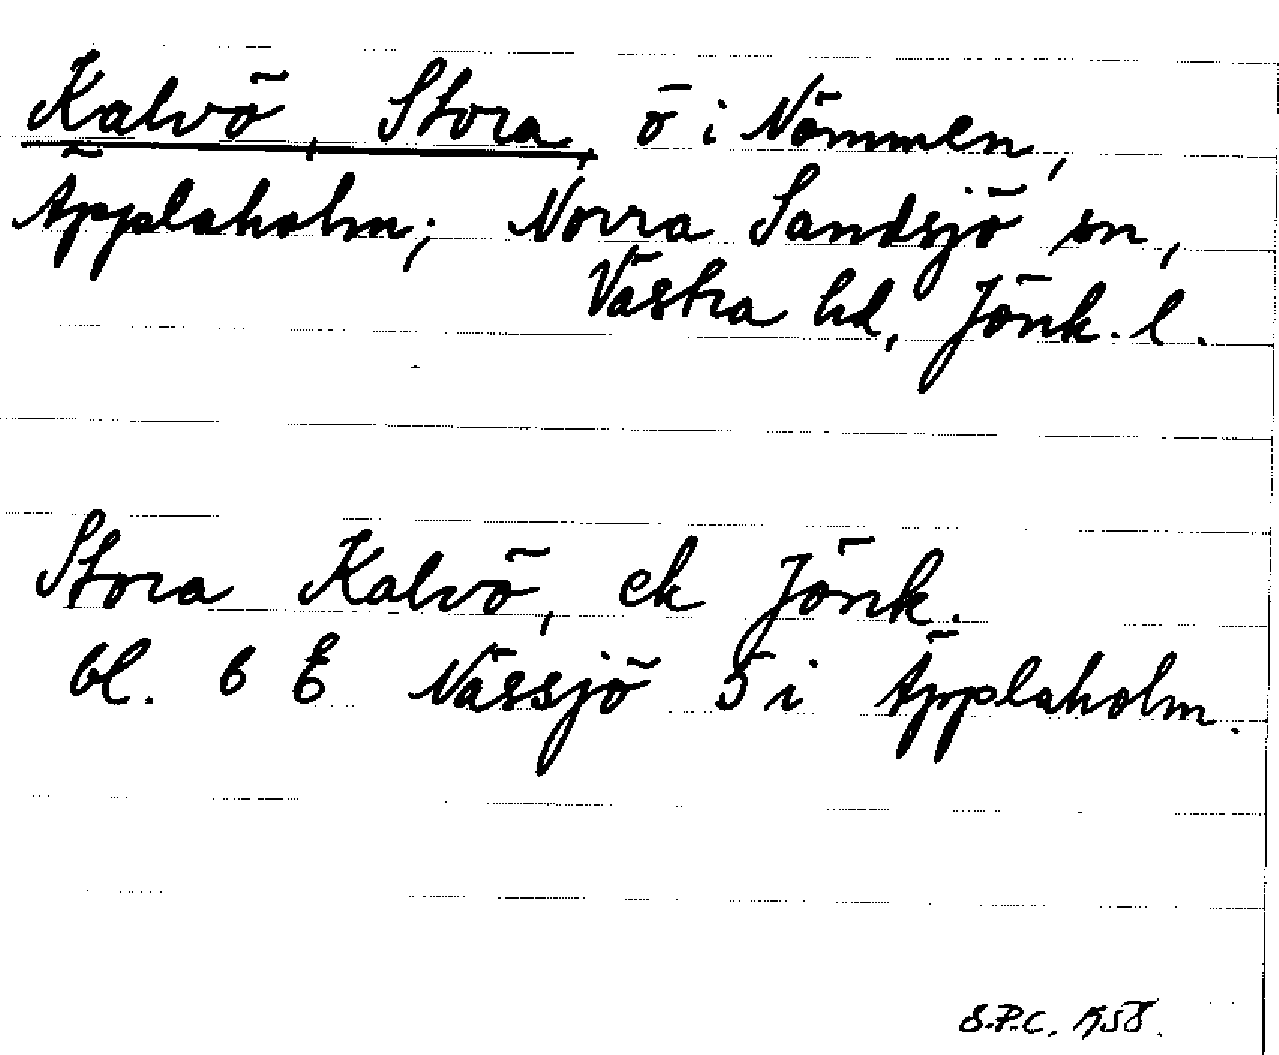 Kalvö, Stora, ö i Nömmen,
Äpplaholm; Norra Sandsjö sn,
Västra hd, Jönk. l.
Stora Kalvö, ek Jönk.
bl. 6 E Nässjö 5 i Äpplaholm.
S.P.C. 1958.